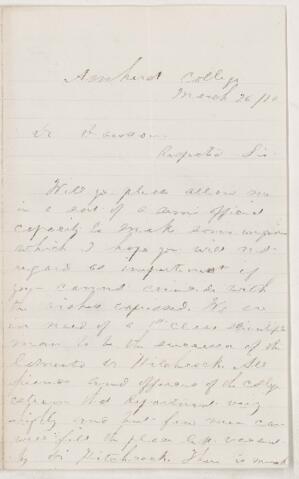 Amherst College
March 26/
Dr Dawson
Respected Sir
Will you please allow me
in a sort of a semi official
capacity to make some inquiries
which I hope you will not
regard as impertinent if
you cannot coincide with
the wishes expressed. We are
in need of a 1st Class scientific
man to be the successor of the
lamented Dr Hitchcock. All
friends and officers of the College
esteem that department very
highly and but few men can
well fill the place left vacant
by Dr Hitchcock. There is much